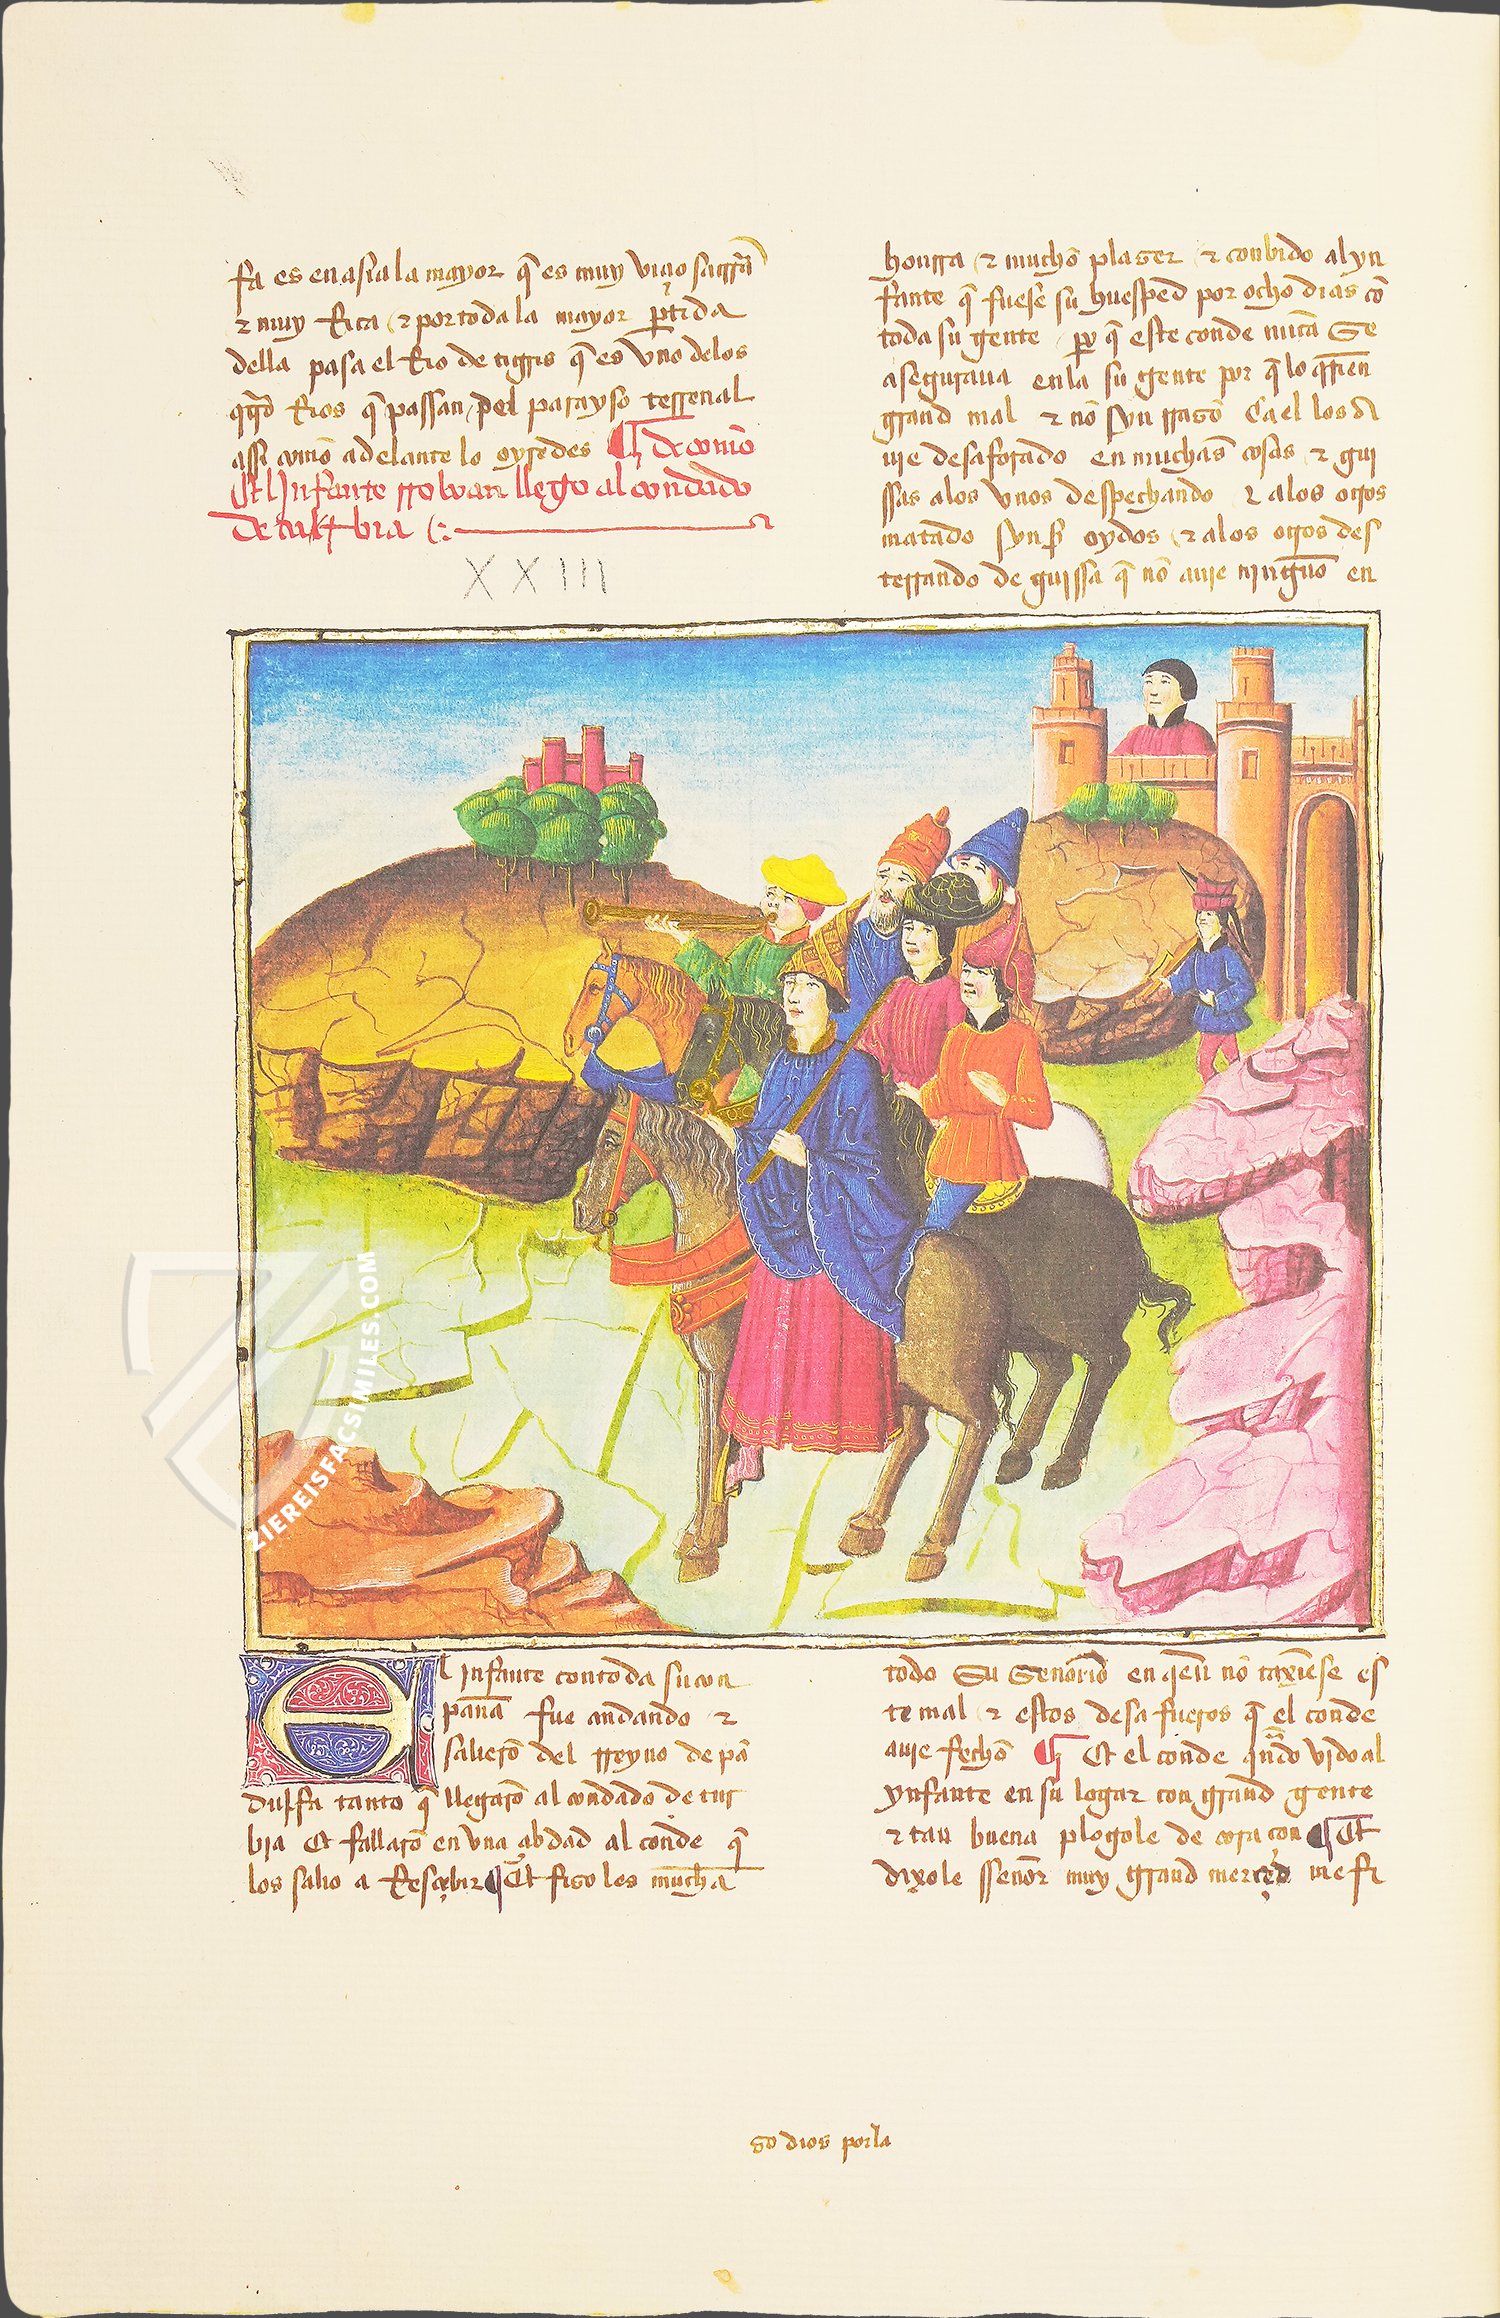 fa es en asia la mayor q̃ es muy viçio sa tr̃ra
⁊ muy Rica ⁊ por toda la mayor p̱tida
della pasa el Rio de tigris q̃ es vno delos
Rios q̃ passan, del parayso terrenal
assi com̃o adelante lo oyredes ¶ de com̃o
El Infante rroboan llego al condado
de turbia
XXIII
honrra ⁊ mucho plaser ⁊ conbido al yn
fante q̃ fuese su huesped por ocho dias cõ
toda su gente p̱o q̃ este conde nũca Se
aseguraua en la su gente por q̃ lo q̃rien
grand mal ⁊ nõ syn rrasõ Ca el los a
uie desaforado en muchas cosas ⁊ gui
ssas alos vnos despechando ⁊ a los otros
matado syn s̃ oydos ⁊ a los otros des
terrando de guissa q̃ nõ auie ningũo en
El infante con toda su con
pana fue andando ⁊
salierõ del rreyno de pã
dulfa tanto q̃ llegarõ al condado de tur
bia Et fallarõ en vna çibdad al conde q̃
los salio a Resçebir ¶ Et fiso les mucha
todo Su Senorio en q̃en nõ taxiese es
te mal ⁊ estos desafueros q̃ el conde
auie fecho ¶ Et el conde q̃ndo vido al
ynfante en su logar con grand gente
⁊ tan buena plogole de coraçon ¶ Et
dixole ssenor muy grand merçed me fi
so dios por la
ZIEREISFACSIMILES.COM